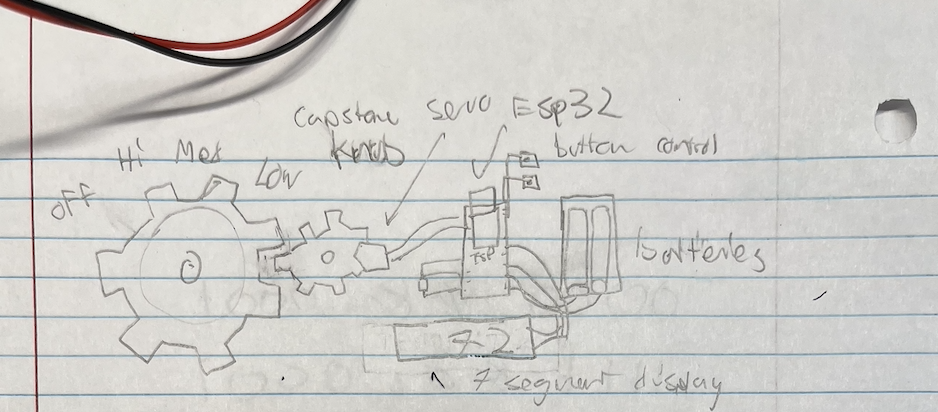 Capstone Servo Esp32
Knob
button control
Hi Med Low
OFF
ESP
batteries
72
7 segment display